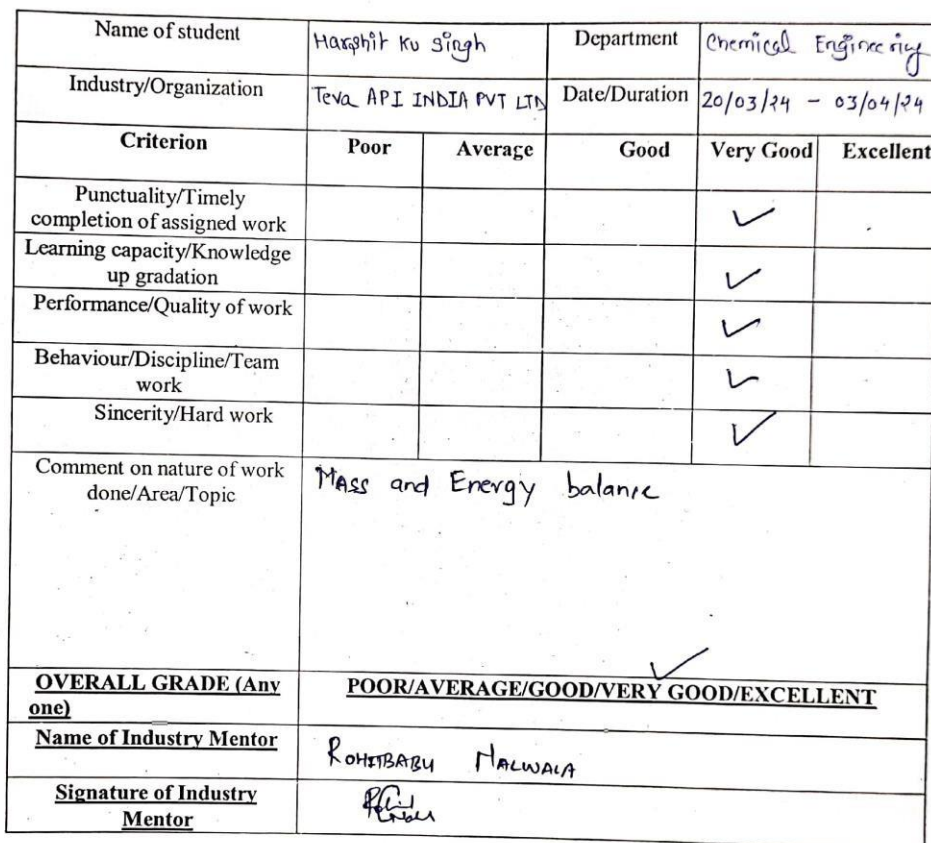 Name of student Harshit Ku Singh Department Chemical Engineering
Industry/Organization Teva API INDIA PVT LTD Date/Duration 20/03/24 - 03/04/24
Criterion Poor Average Good Very Good Excellent
Punctuality/Timely
completion of assigned work ✓
Learning capacity/Knowledge
up gradation ✓
Performance/Quality of work ✓
Behaviour/Discipline/Team
work ✓
Sincerity/Hard work ✓
Comment on nature of work
done/Area/Topic
Mass and Energy balance
OVERALL GRADE (Any
one)
POOR/AVERAGE/GOOD/VERY GOOD/EXCELLENT ✓
Name of Industry Mentor ROHITBABU MALWALA
Signature of Industry
Mentor